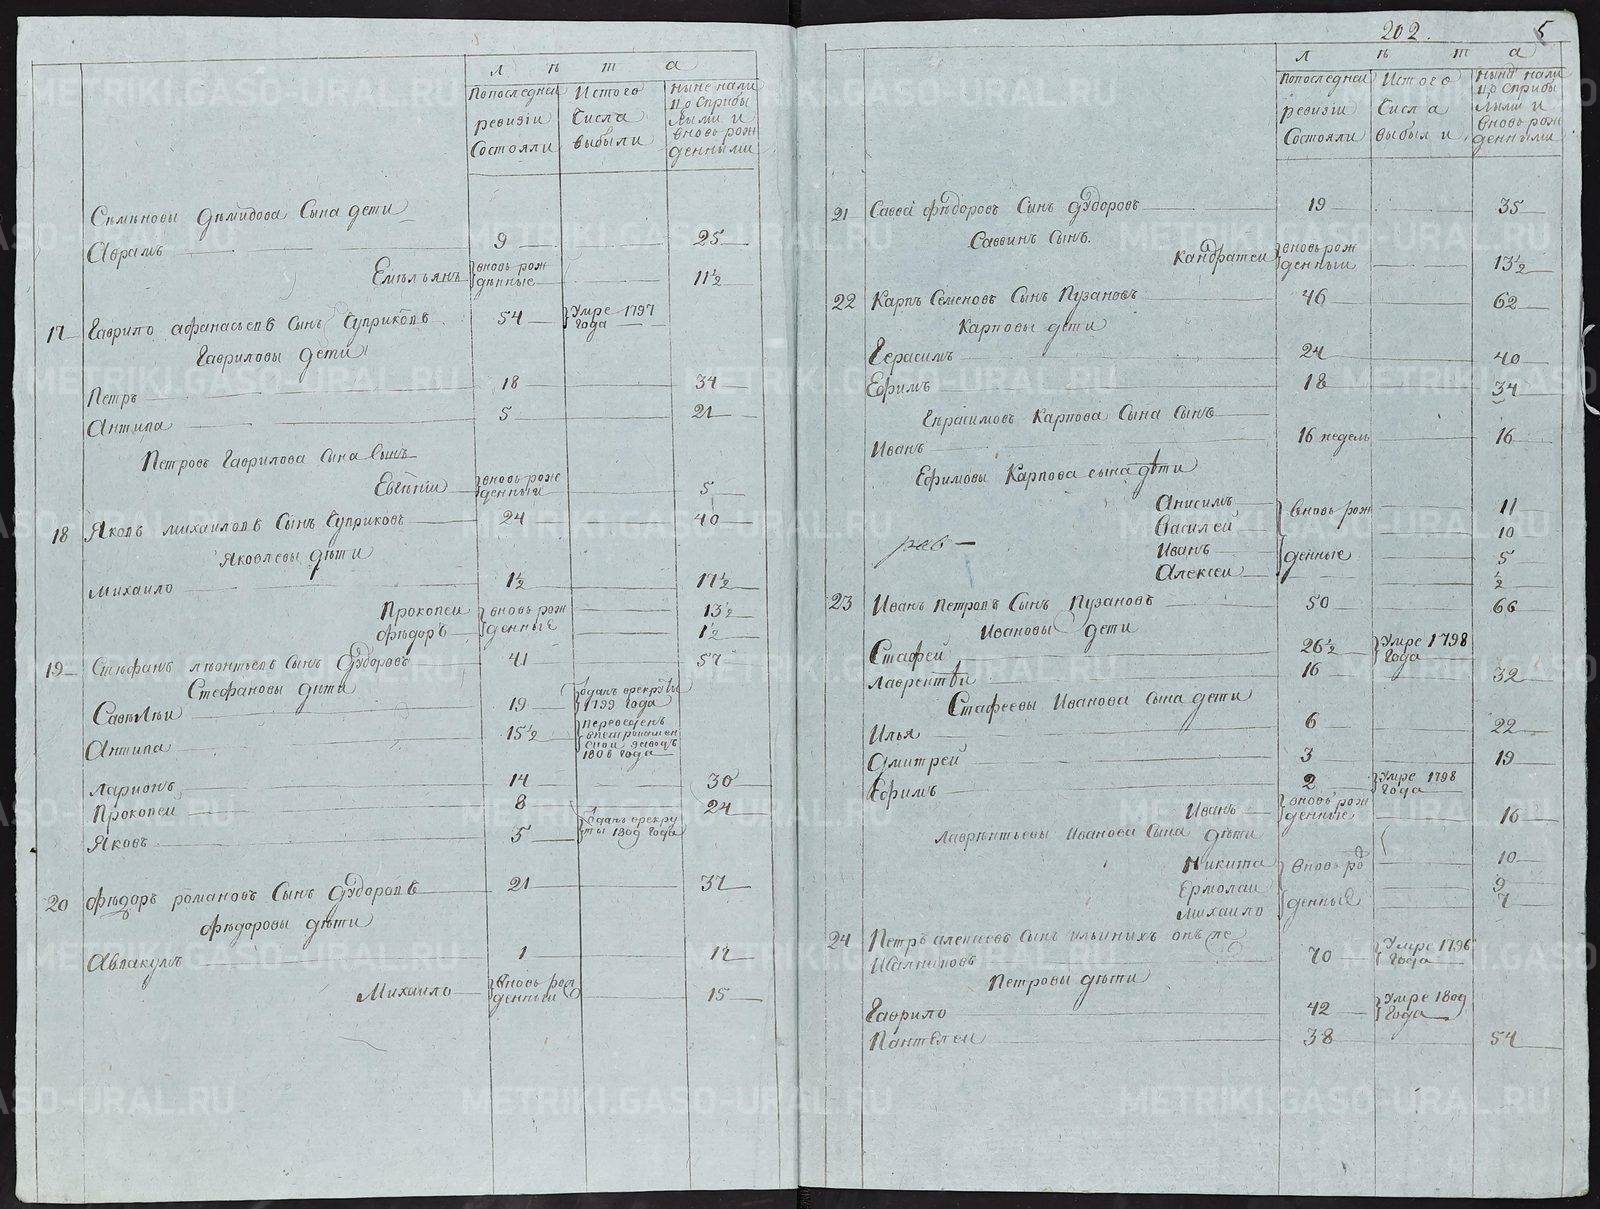 л ѣ т а
Попоследнеи ревизіи Состояли
Истого Числа выбыли
ныне нали цо сприбы лыми и вновь рож денными
Сѣмѣновы Дѣмидова Сына дети
Аврамъ 9 25
Емѣльянъ вновь рож дѣнные 11½
17 Гаврило афанасьевъ Сынъ Чуприковъ 54 Умре 1797 Года
Гавриловы дети
Петръ 18 34
Антипа 5 21
Петровъ Гаврилова Сына Сынъ
Евгѣнiи вновь рож денныи 5
18 Яковъ михаиловъ Сынъ Чуприковъ 24 40
Яковлевы дѣти
михаило 1½ 17½
Прокопеи вновь рож 13½
Ѳѣдоръ денные 1½
19 Стѣфанъ лѣонтьевъ Сынъ 41 57
Стефановы дѣти
Савѣлѣи 19 Зданъ врекруты 1799 года
Антипа 15½ переведенъ впетрокамен скои заводъ 1806 года
Ларионъ 14 30
Прокопеи 8 24
Яковъ 5 Зданъ врекру ты 1809 года
20 Ѳѣдоръ романовъ Сынъ 21 37
Ѳѣдоровы дѣти
Авакумъ 1 17
Михаило вновь рож денныи 15
202. 5
л ѣ т а
Попоследнеи ревизіи Состояли
Истого Числа выбыли
ныне нали цо сприбы лыми и вновь рож денными
21 Савва Ѳѣдоровъ Сынъ 19 35
Саввинъ Сынъ.
Кандратеи вновь рож денныи 13½
22 Карпъ Семеновъ Сынъ Пузановъ 46 62
Карповы дети
Герасимъ 24 40
Ефимъ 18 34
Герасимовъ Карпова Сына Сынъ
Иванъ 16 недель 16
Ефимовы Карпова сына дѣти
Анисимъ вновь рож 11
Василеи 10
Иванъ денные 5
Алексеи ½
23 Иванъ Петровъ Сынъ Пузановъ 50 66
Ивановы дети
Стафеи 26½ Умре 1798 Года
лаврентѣи 16 32
Стафеевы Иванова Сына дети
Илья 6 22
Дмитреи 3 19
Ефимъ 2 Умре 1798 Года
Иванъ вновь рож денные 16
лаврѣнтьевы Иванова Сына дѣти
Никита вновь ро 10
Ермолаи 9
Михаило денные 7
24 Петръ алексеевъ Сынъ ильиныхъ онъ 70 Умре 1796 Года
Петровы дѣти
Гаврило 42 Умре 1809 Года
Пантелеи 38 54